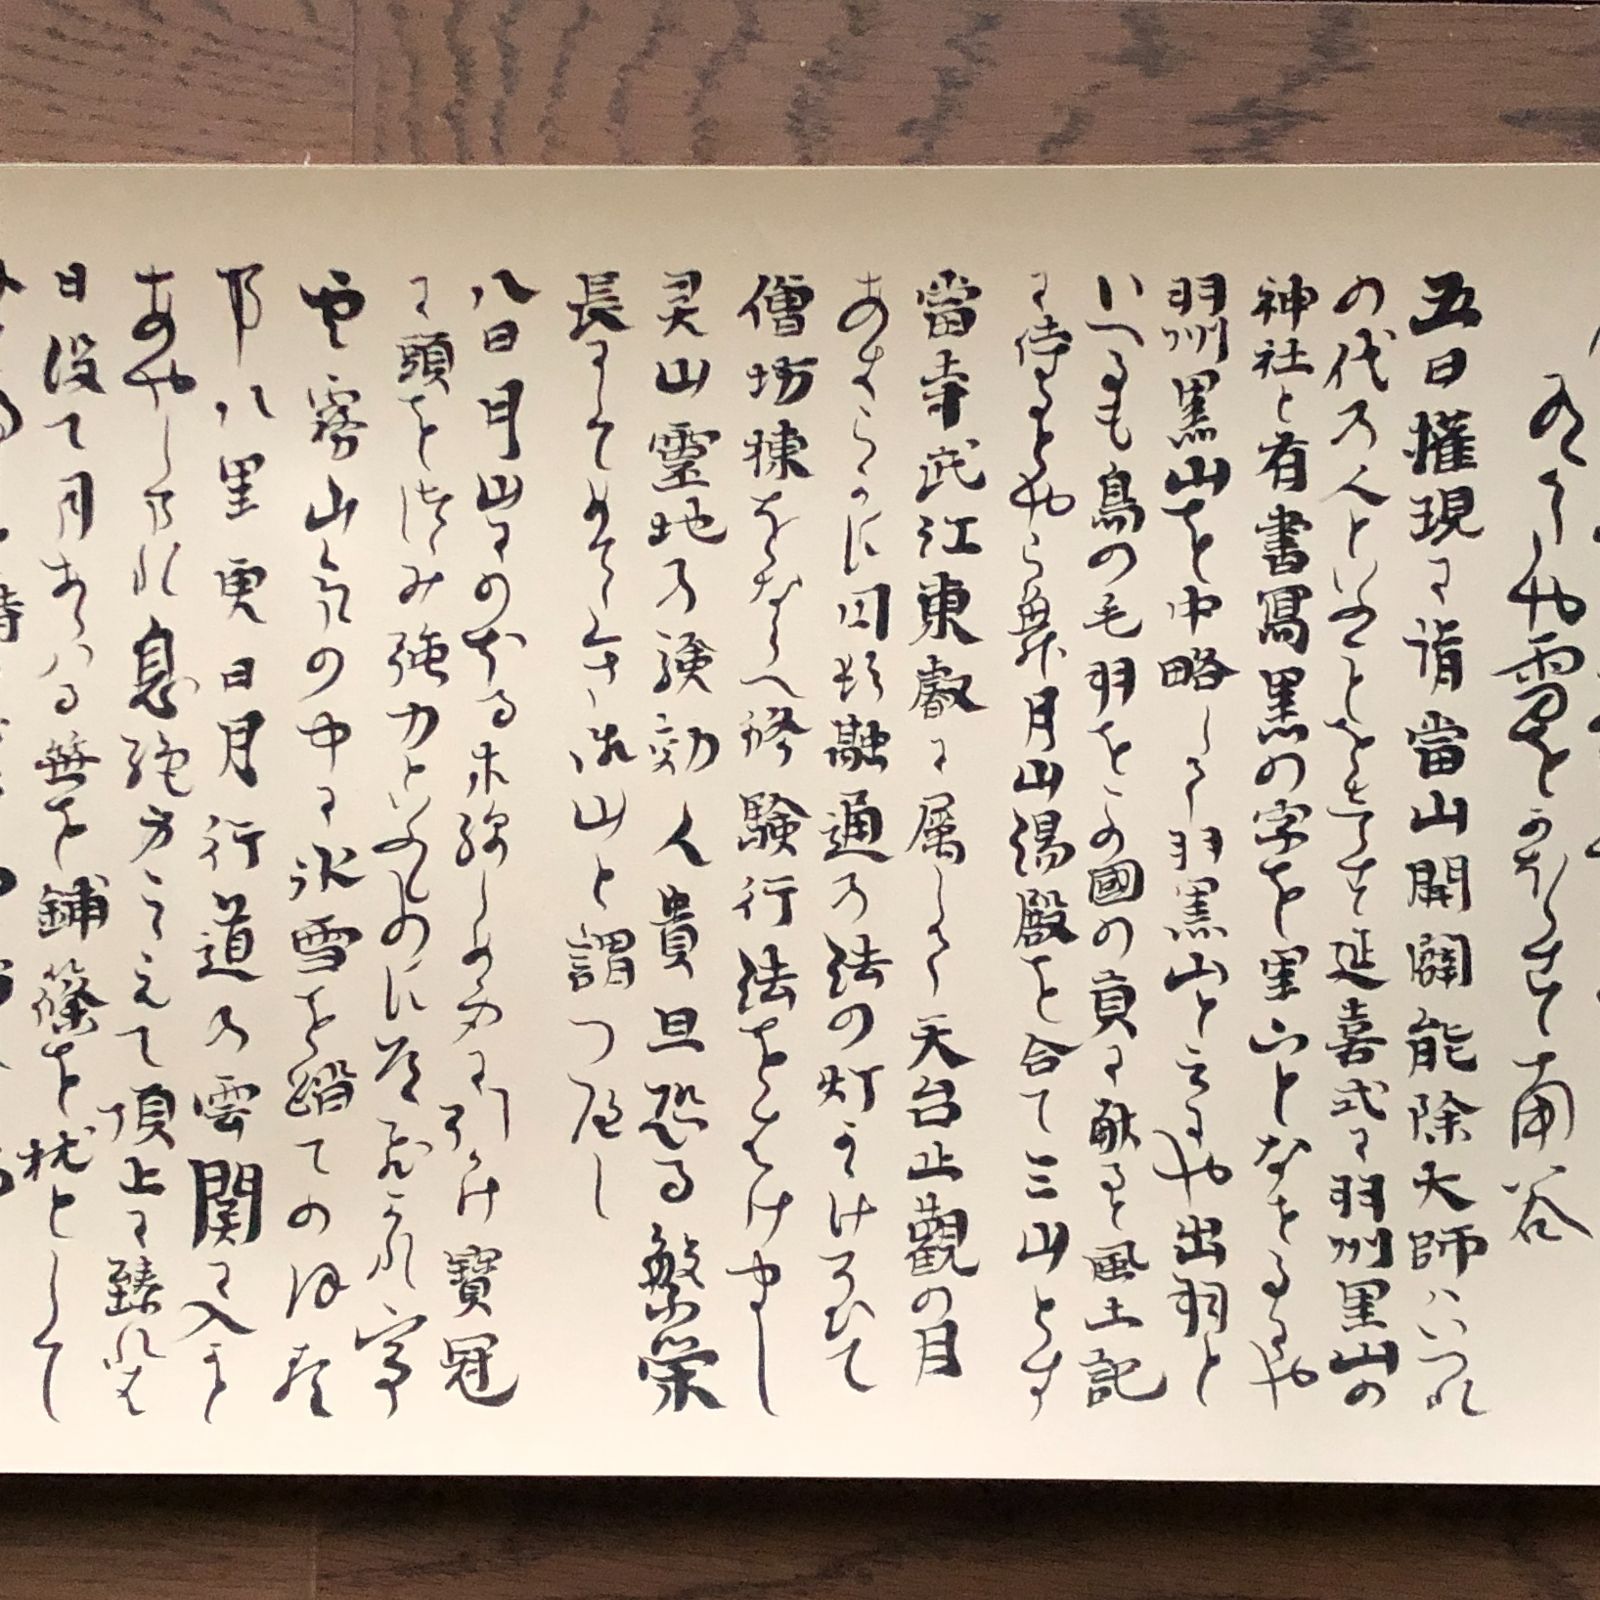 有かたや雪をかほらす南谷
五日権現に詣當山開闢能除大師ハいつれ
の代の人といふことをしらす延喜式に羽州里山の
神社と有書寫黒の字を里山となせるにや
羽州黒山を中略して羽黒山と云にや出羽と
いへるも鳥の毛羽をこの國の貢に献ると風土記
に侍るとやらん月山湯殿を合て三山とす
當寺武江東叡に属して天台止觀の月
あきらかに円頓融通の法の灯かけそひて
僧坊棟をならへ修験行法をはけまし
灵山霊地の験効人貴且恐る繁栄
長にしてめてたき御山と謂つへし
八日月山にのほる木綿しめ身に引かけ寶冠
に頭をつゝみ強力といふものに道ひかれて
雲霧山気の中に氷雪を踏てのほる
事八里更日月行道の雲関に入かと
あやしまれ息絶身こゝえて頂上に臻れは
日没て月あらハる笹を鋪篠を枕として